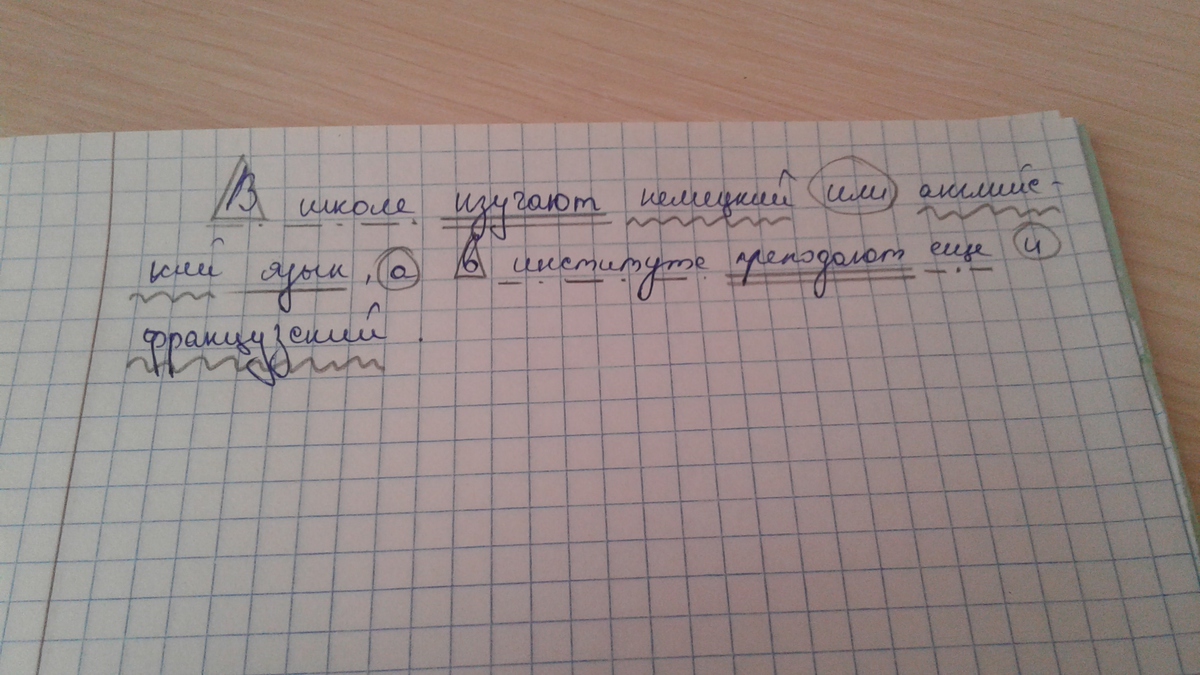 В школе изучают немецкий или английс-
кий язык, а в институте преподают еще и
французский.